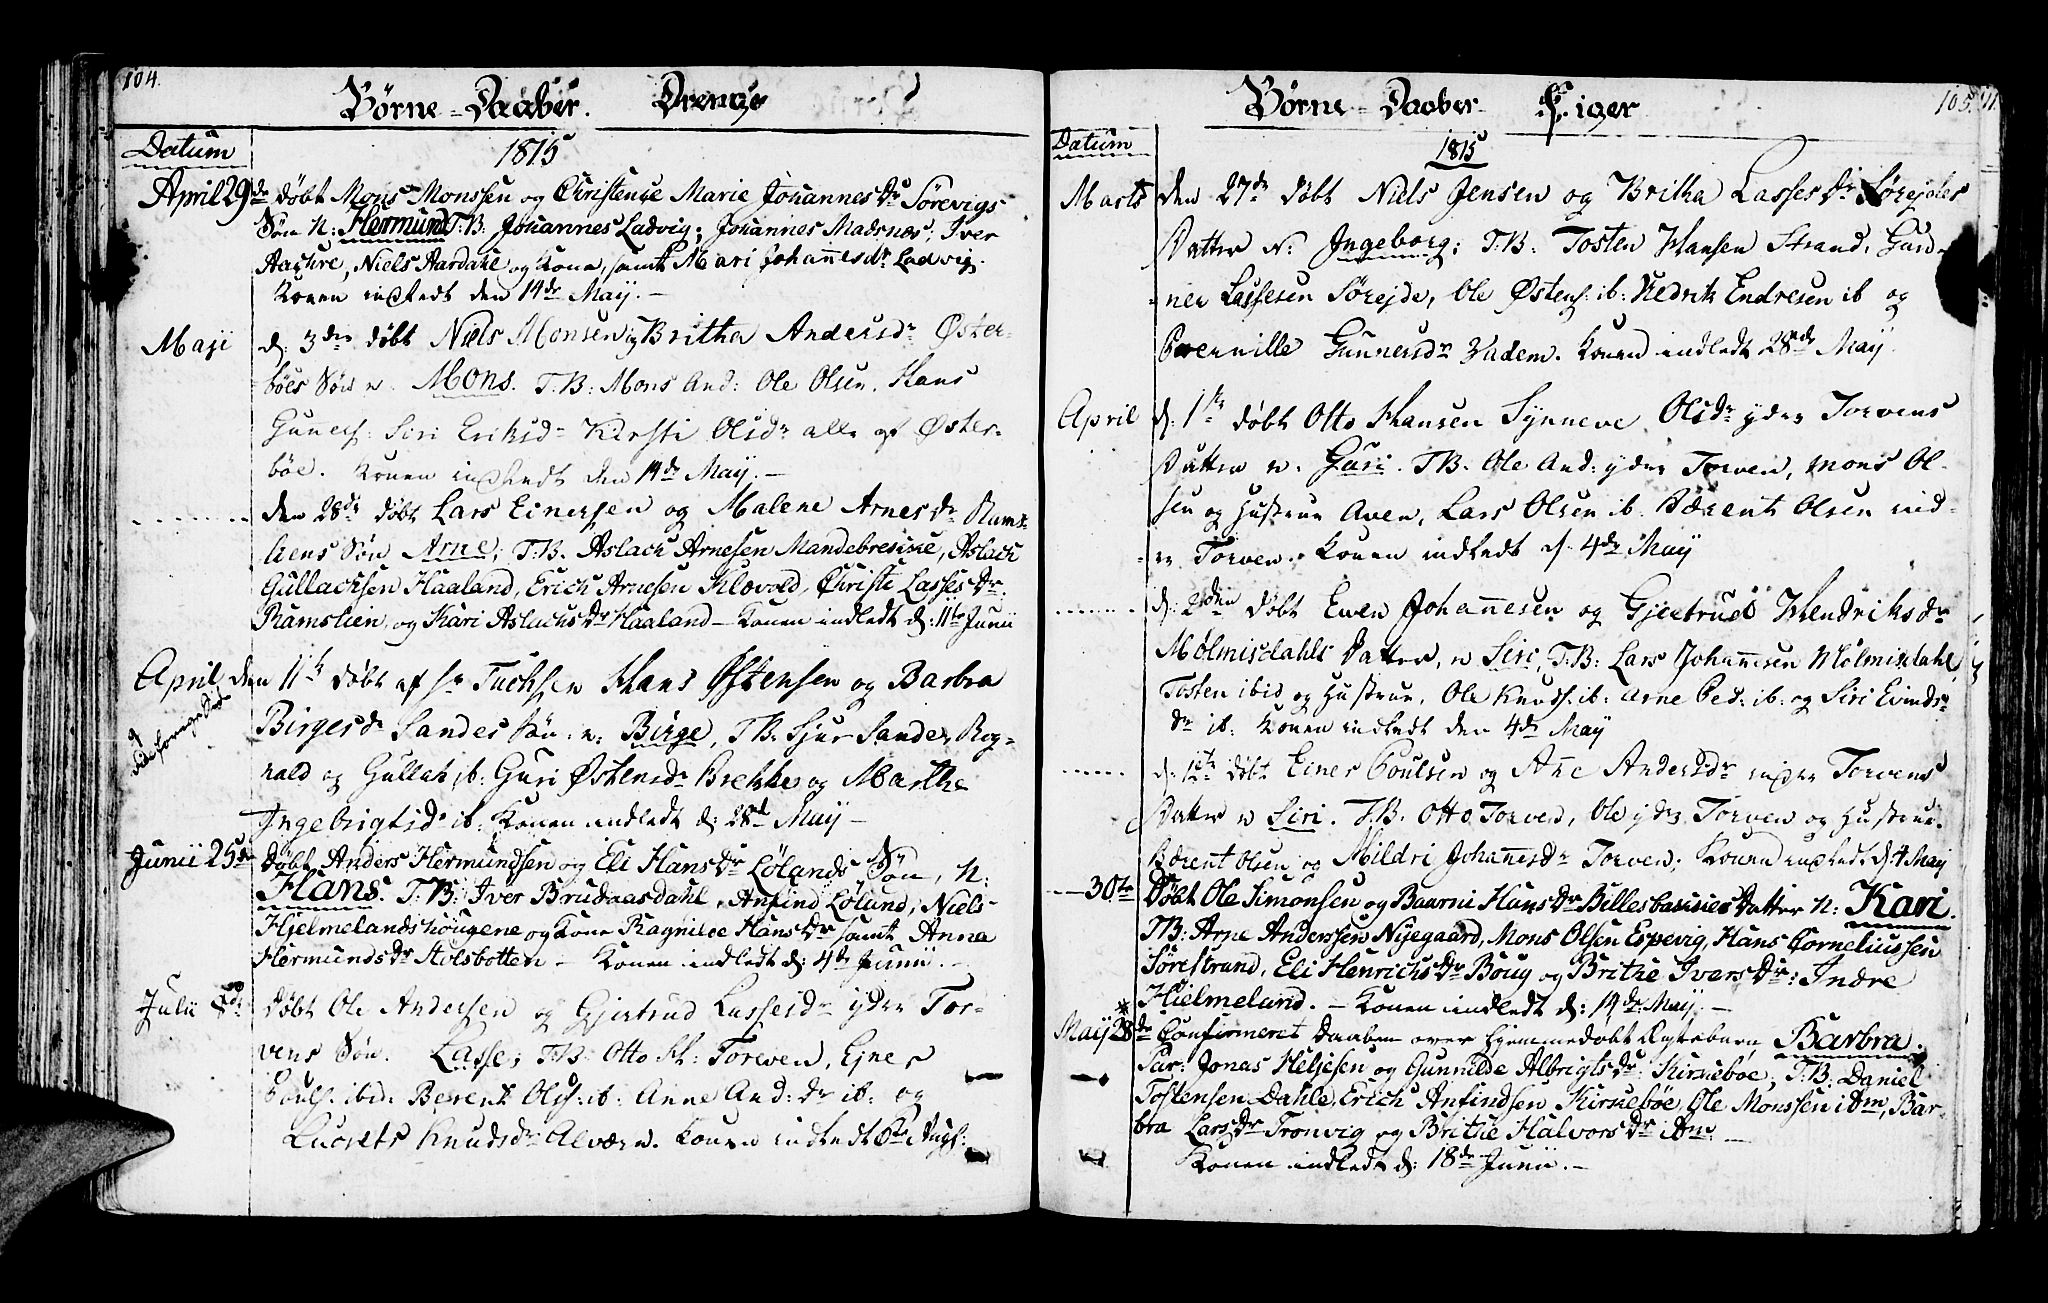 104.
Börne-Daaber. Drenge
Datum
1815
April 29de döbt Mons Monssen og Christense Marie JohannesDr Sörevigs
Sön N: Hermund T.B: Johannes Ladvig; Johannes Madsnæs; Iver
Aachre, Niels Aardahl og Kone, samt Mari Johannesdr Ladvig.
Konen indledt den 14de Maij. —
Maji d: 3de döbt Niels Monsen og Britha Andersdr Øster-
böes Sön n. Mons. T.B: Mons And: Ole Olsen. Hans
Guners: Siri Eriksd- Kirsti Olsdr alle af Øster-
böe. Konen indledt den 14de Maij. —
den 28de döbt Lars Einersen og Malene ArnesDr Rams-
liens Sön Arne; T.B. Aslach Arnesen Mandebrekke, Aslach
Gullachsen Haaland, Erich Arnesen Klævold, Christi LassesDr
Ramslien og Kari AslachsDr Haaland — Konen indledt d: 11te Junii
April den 11te döbt af Hr Tuchsen Hans Østensen og Barbra
Birgesdr Sandes Sön n: Birge, T.B. Sjur Sande, Rog-
nald og Gullak ib: Guri Østensdr Brekke og Marthe
Ingebrigtsdr ib. Konen indledt d: 28de Maij —
Junii 25de Döbt Anders Hermundsen og Eli HansDr Lölands Sön, N:
Hans. T.B: Iver Brudaasdahl, Anfind Lölund, Niels
Hjelmelandshougene og Kone Ragnilde HansDr samt Anna
HermundsDr Stolsbotten — Konen indledt d: 4de Junii. —
Julii döbt Ole Andersen og Gjertrud Lassesdr ydre Tor-
vens Sön. Lasse; T.B: Otto H: Torven, Ejner
Pouls: ibid: Berent Ols: ib: Anne And: dr ib: og
Lucrets Knudsdr Alværn. Konen indledt Augs:
105.
Börne-Daaber Piger
Datum
1815
Marts den 27de döbt Niels Jensen og Britha LassesDr Sörejdes
Datter N: Ingeborg; T.B: Tosten Hansen Strand, Gun-
ner Lassesen Sörejde, Ole Østens: ib: Hedrik Endresen ib og
Pernille Gunnersdr Vadem. Konen indledt 28de Maij
April d: 1te döbt Otto Hansen Synneve Olsdr ydre Torvens
Datter n. Guri. T.B. Ole And: ydre Torven, Mons Ol-
sen og Hustrue Aven, Lars Olsen ib. Bærent Olsen ind-
re Torven. Konen indledt d. 4de Maij
d: 2den döbt Even Johannesen og Gjertrud Hendriksdr
Mölmisdahls Datter, n Siri, T.B: Lars Johannesen Mölmisdahl,
Tosten ibid og Hustrue, Ole Knuds: ib: Arne Ped: ib: og Siri Evinds-
dr ib. Konen indledt den 4de Maij
d: 1ste döbt Einer Poulsen og Ane Andersdr indre Torvens
Datter n Siri. T.B. Otto Torven, Ole ydre Torven og Hustrue.
Bærent Olsen og Mildri Johannesdr Torven; Konen indledt d 4 Maij
30te Döbt Ole Simonsen og Baarni HansDr Datter N: Kari.
T.B: Arne Anderssen Nijegaard, Mons Olsen Espevig, Hans Corneliussen
Sörestrand, Eli HenrichsDr Böuy og Brithe IversDr: Indre
Hjelmeland. — Konen indledt d: 14de Maij. —
Maij 28de Confirmeret Daaben over hjemmedöbt Ægtebarn Barbra.
Par: Jonas Heljesen og Gunnilde AlbrigtsDr: Kirkeböe; T.B: Daniel
Tostensen Dahle, Erich Anfindsen Kirkeböe, Ole Monssen ibm, Bar-
bra LarsDr Tronvig og Brithe HalvorsDr ibm. —
Konen indledt d: 18de Junii. —